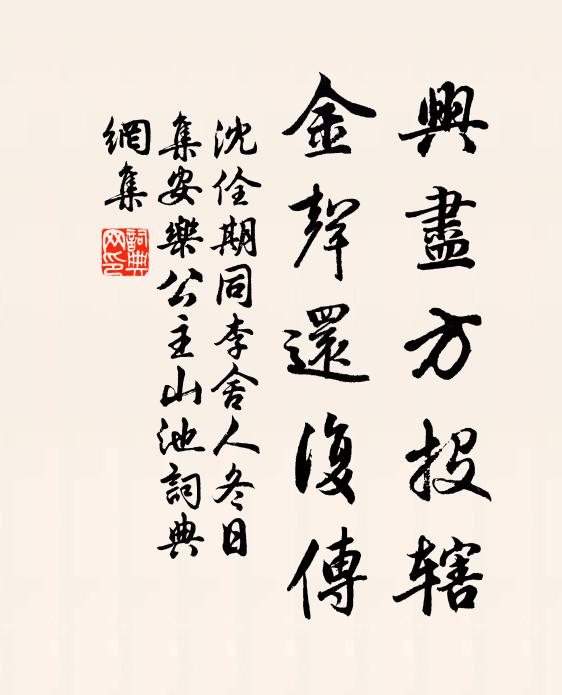 興盡方投辖
金聲還復傳
沈佺期同李舍人冬日
集安樂公主山池詞典
網集
詞典
网印